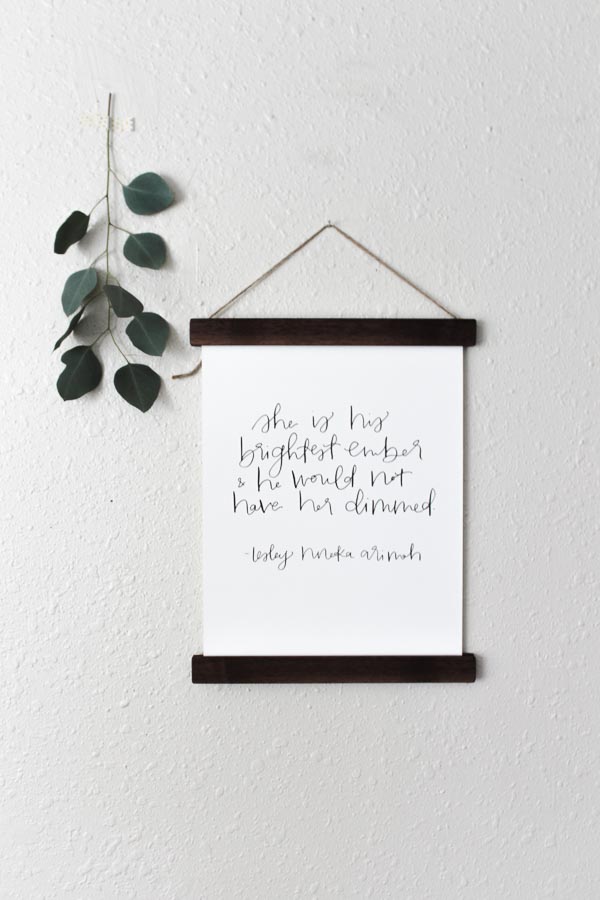 she is his
brightest ember
& he would not
have her dimmed.
- lesley nneka arimah